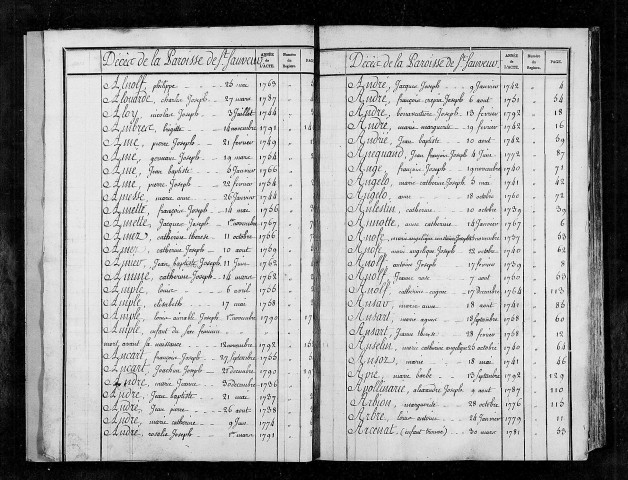 Décèc de la Paroisse de St. Sauveur.
ANNÉE de L'ACTE.
Numéro du Registre.
PAGE
Alnoff, philippe 26 mai 1763
Alouarde, charlie Joseph 27 mars 1787
Aloy, nicolas Joseph 3 Juillet 1744
Ambrez, brigitte 14 novembre 1791
Ame, pierre Joseph 21 février 1749
Ame, germain Joseph 19 mars 1754
Ame, Jean baptiste 5 Janvier 1766
Ame, pierre Joseph 22 février 1754
Amesse, marie anne 26 Janvier 1744
Amelle, françoise Joseph 14 mai 1756
Amelle, Jacques Joseph 1er novembre 1767
Amez, catherine therese 11 octobre 1736
Amez, catherine Joseph 10 août 1739
Amez, Jean baptiste Joseph 11 Juin 1762
Amme, catherine Joseph 14 mars 1762
Ample, louise 6 avril 1756
Ample, elisabeth 17 mai 1768
Ample, louis aimable Joseph 1er novembre 1790
Ample, enfant du sexe féminin
mort avant sa naissance 12 novembre 1792
Ancart, françois Joseph 27 septembre 1766
Ancart, Joachim Joseph 22 décembre 1790
Andre, marie Jeanne 30 décembre 1736
Andre, Jean baptiste 21 mai 1737
Andre, Jean pierre 26 août 1738
Andre, marie catherine 9 Juin 1774
Andre, rosalie Joseph 1er mars 1791
Décèc de la Paroisse de St. Sauveur.
ANNÉE de L'ACTE.
Numéro du Registre.
PAGE.
Andre, Jacques Joseph 9 Janvier 1742 4
Andre, françois crepin Joseph 6 août 1751 54
Andre, bonaventure Joseph 13 février 1792 18
Andre, marie marguerite 19 février 1742 16
Andrié, Jean baptiste 10 août 1742 59
Anequand, Jean françois Joseph 4 Juin 1772 87
Ange, françoise Joseph 19 novembre 1740 71
Angelo, marie catherine Joseph 5 mai 1741 42
Angelo, anne 18 octobre 1760 72
Anlestin, catherine 10 octobre 1739 39
Annotte, anne catherine 14 Janvier 1767 6
Anoff, marie angelique Joseph novembre 1737 53
Anoff, marie angelique Joseph 12 octobre 1740 62
Anoff, antoine Joseph 17 février 1759 8
Anoff, Jeanne rose 7 août 1760 53
Anolff, catherine eugene 17 décembre 1764 113
Ansar, marie anne 18 août 1741 86
Ansart, marie agnes 13 septembre 1768 60
Ansart, Jeanne therese 28 février 1768 12
Anselin, marie catherine angelique 26 octobre 1740 63
Ansoz, marie 18 mai 1741 46
Apie, marie barbe 13 septembre 1792 129
Apollinaire, alexandre Joseph 4 août 1787 110
Arbion, marguerite 28 octobre 1776 113
Arbre, louis antoine 24 Janvier 1779 11
Arcenat (enfant trouvé) 30 mars 1781 33